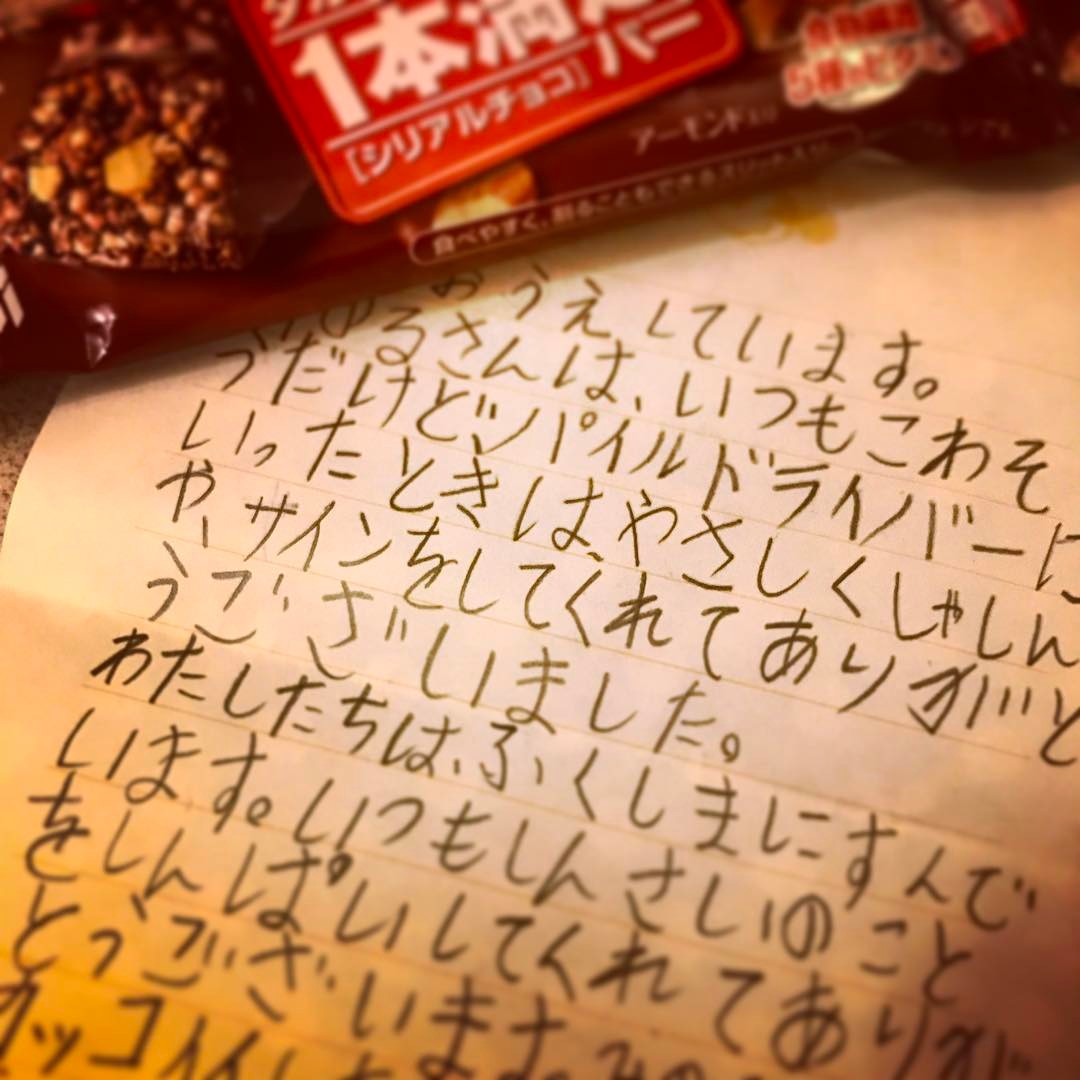 1本満足バー
[シリアルチョコ]
アーモンド
食べやすく、割ることもできるスリット入り
食物繊維
5種のビタミン
おうえしています。
のるさんは、いつもこわそ
うだけどパイルドライバーに
いったときは、やさしくしゃしん
や、サインをしてくれてありがと
うございました。
わたしたちは、ふくしまにすんで
います。いつもしんさいのこと
をしんぱいしてくれてありが
とうございます。
カッコイイし